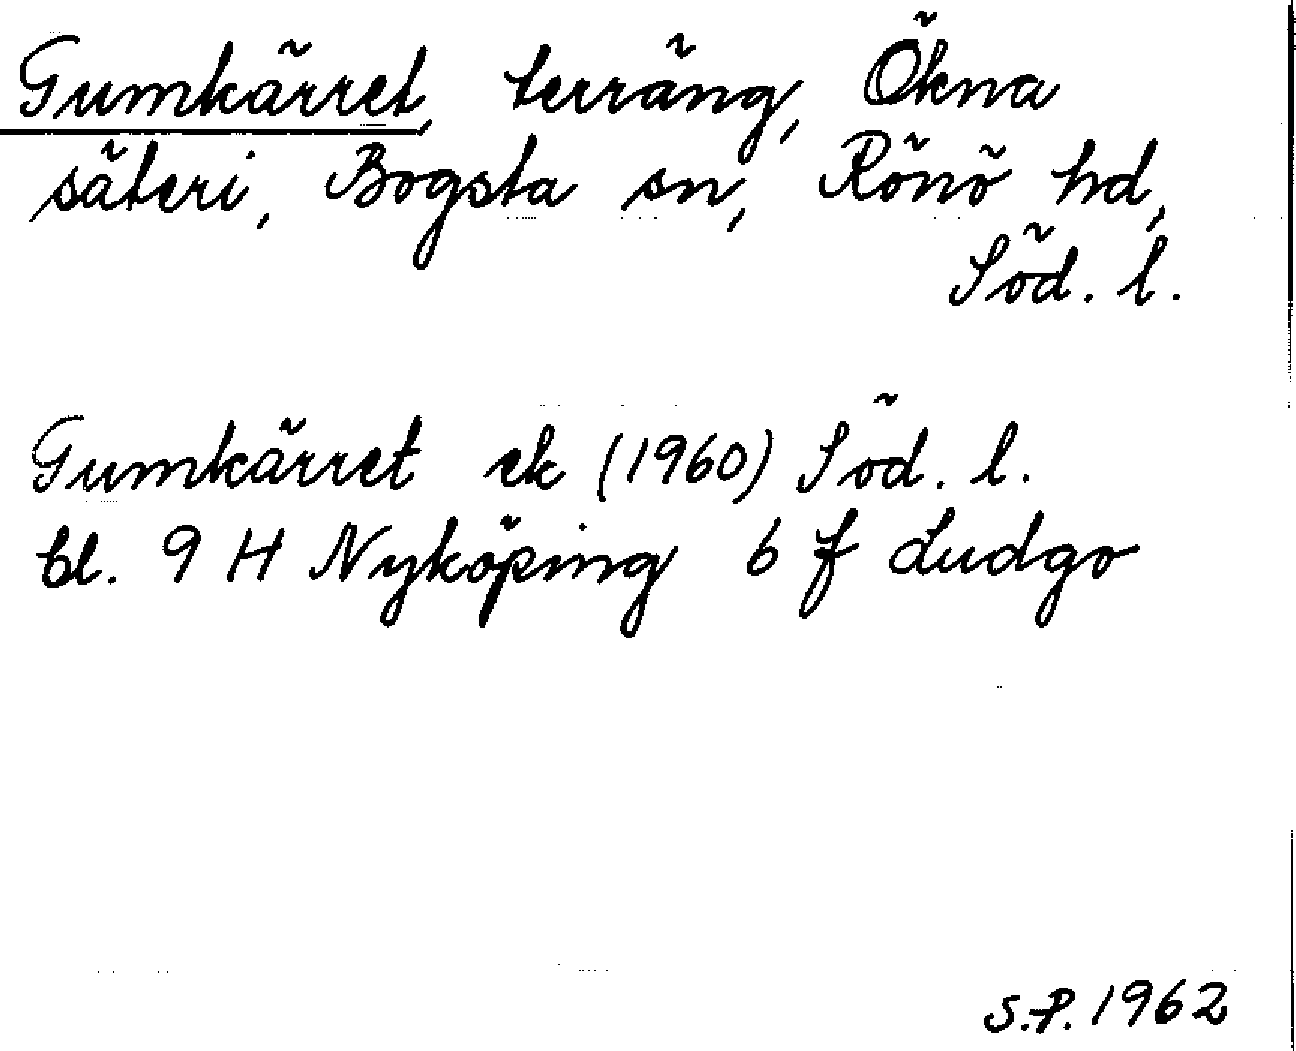 Gumkärret, terräng, Ökna
säteri, Bogsta sn, Rönö hd,
Söd. l.
Gumkärret ek (1960) Söd. l.
bl. 9 H Nyköping 6 f Ludgo
S.P. 1962